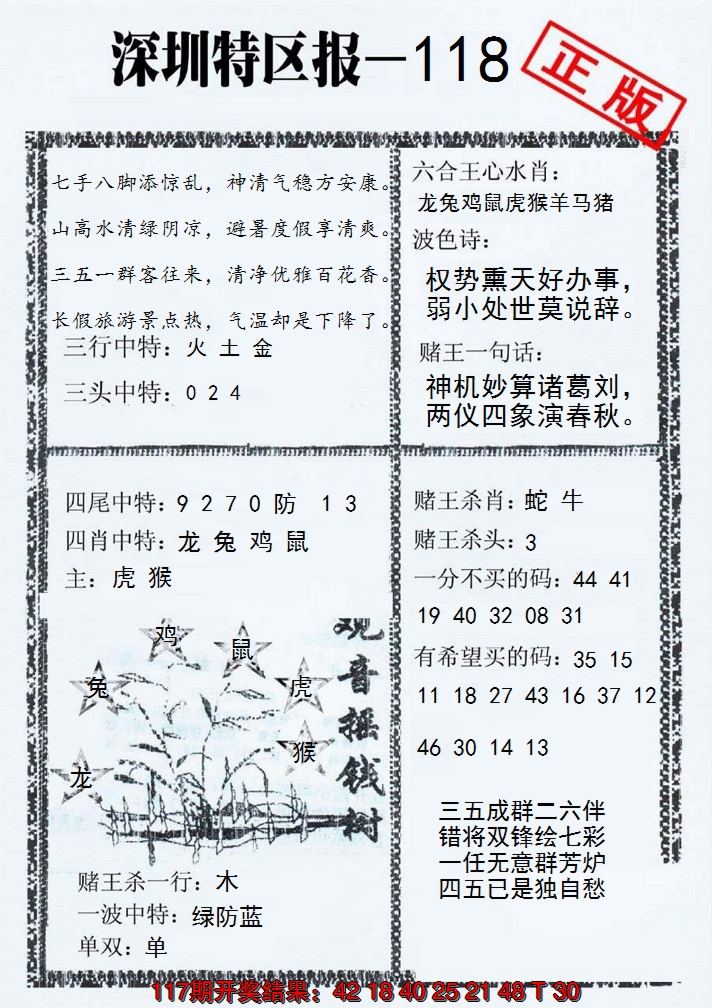 深圳特区报—118
正版
七手八脚添惊乱，神清气稳方安康。
山高水清绿阴凉，避暑度假享清爽。
三五一群客往来，清净优雅百花香。
长假旅游景点热，气温却是下降了。
三行中特：火 土 金
三头中特：0 2 4
六合王心水肖：
龙兔鸡鼠虎猴羊马猪
波色诗：
权势熏天好办事，
弱小处世莫说辞。
赌王一句话：
神机妙算诸葛刘，
两仪四象演春秋。
四尾中特：9 2 7 0 防 1 3
四肖中特：龙 兔 鸡 鼠
主：虎 猴
鸡
鼠
兔
虎
猴
龙
观音摇钱树
赌王杀一行：木
一波中特：绿防蓝
单双：单
赌王杀肖：蛇 牛
赌王杀头：3
一分不买的码：44 41
19 40 32 08 31
有希望买的码：35 15
11 18 27 43 16 37 12
46 30 14 13
三五成群二六伴
错将双锋绘七彩
一任无意群芳炉
四五已是独自愁
117期开奖结果：42 18 40 25 21 48 T 30